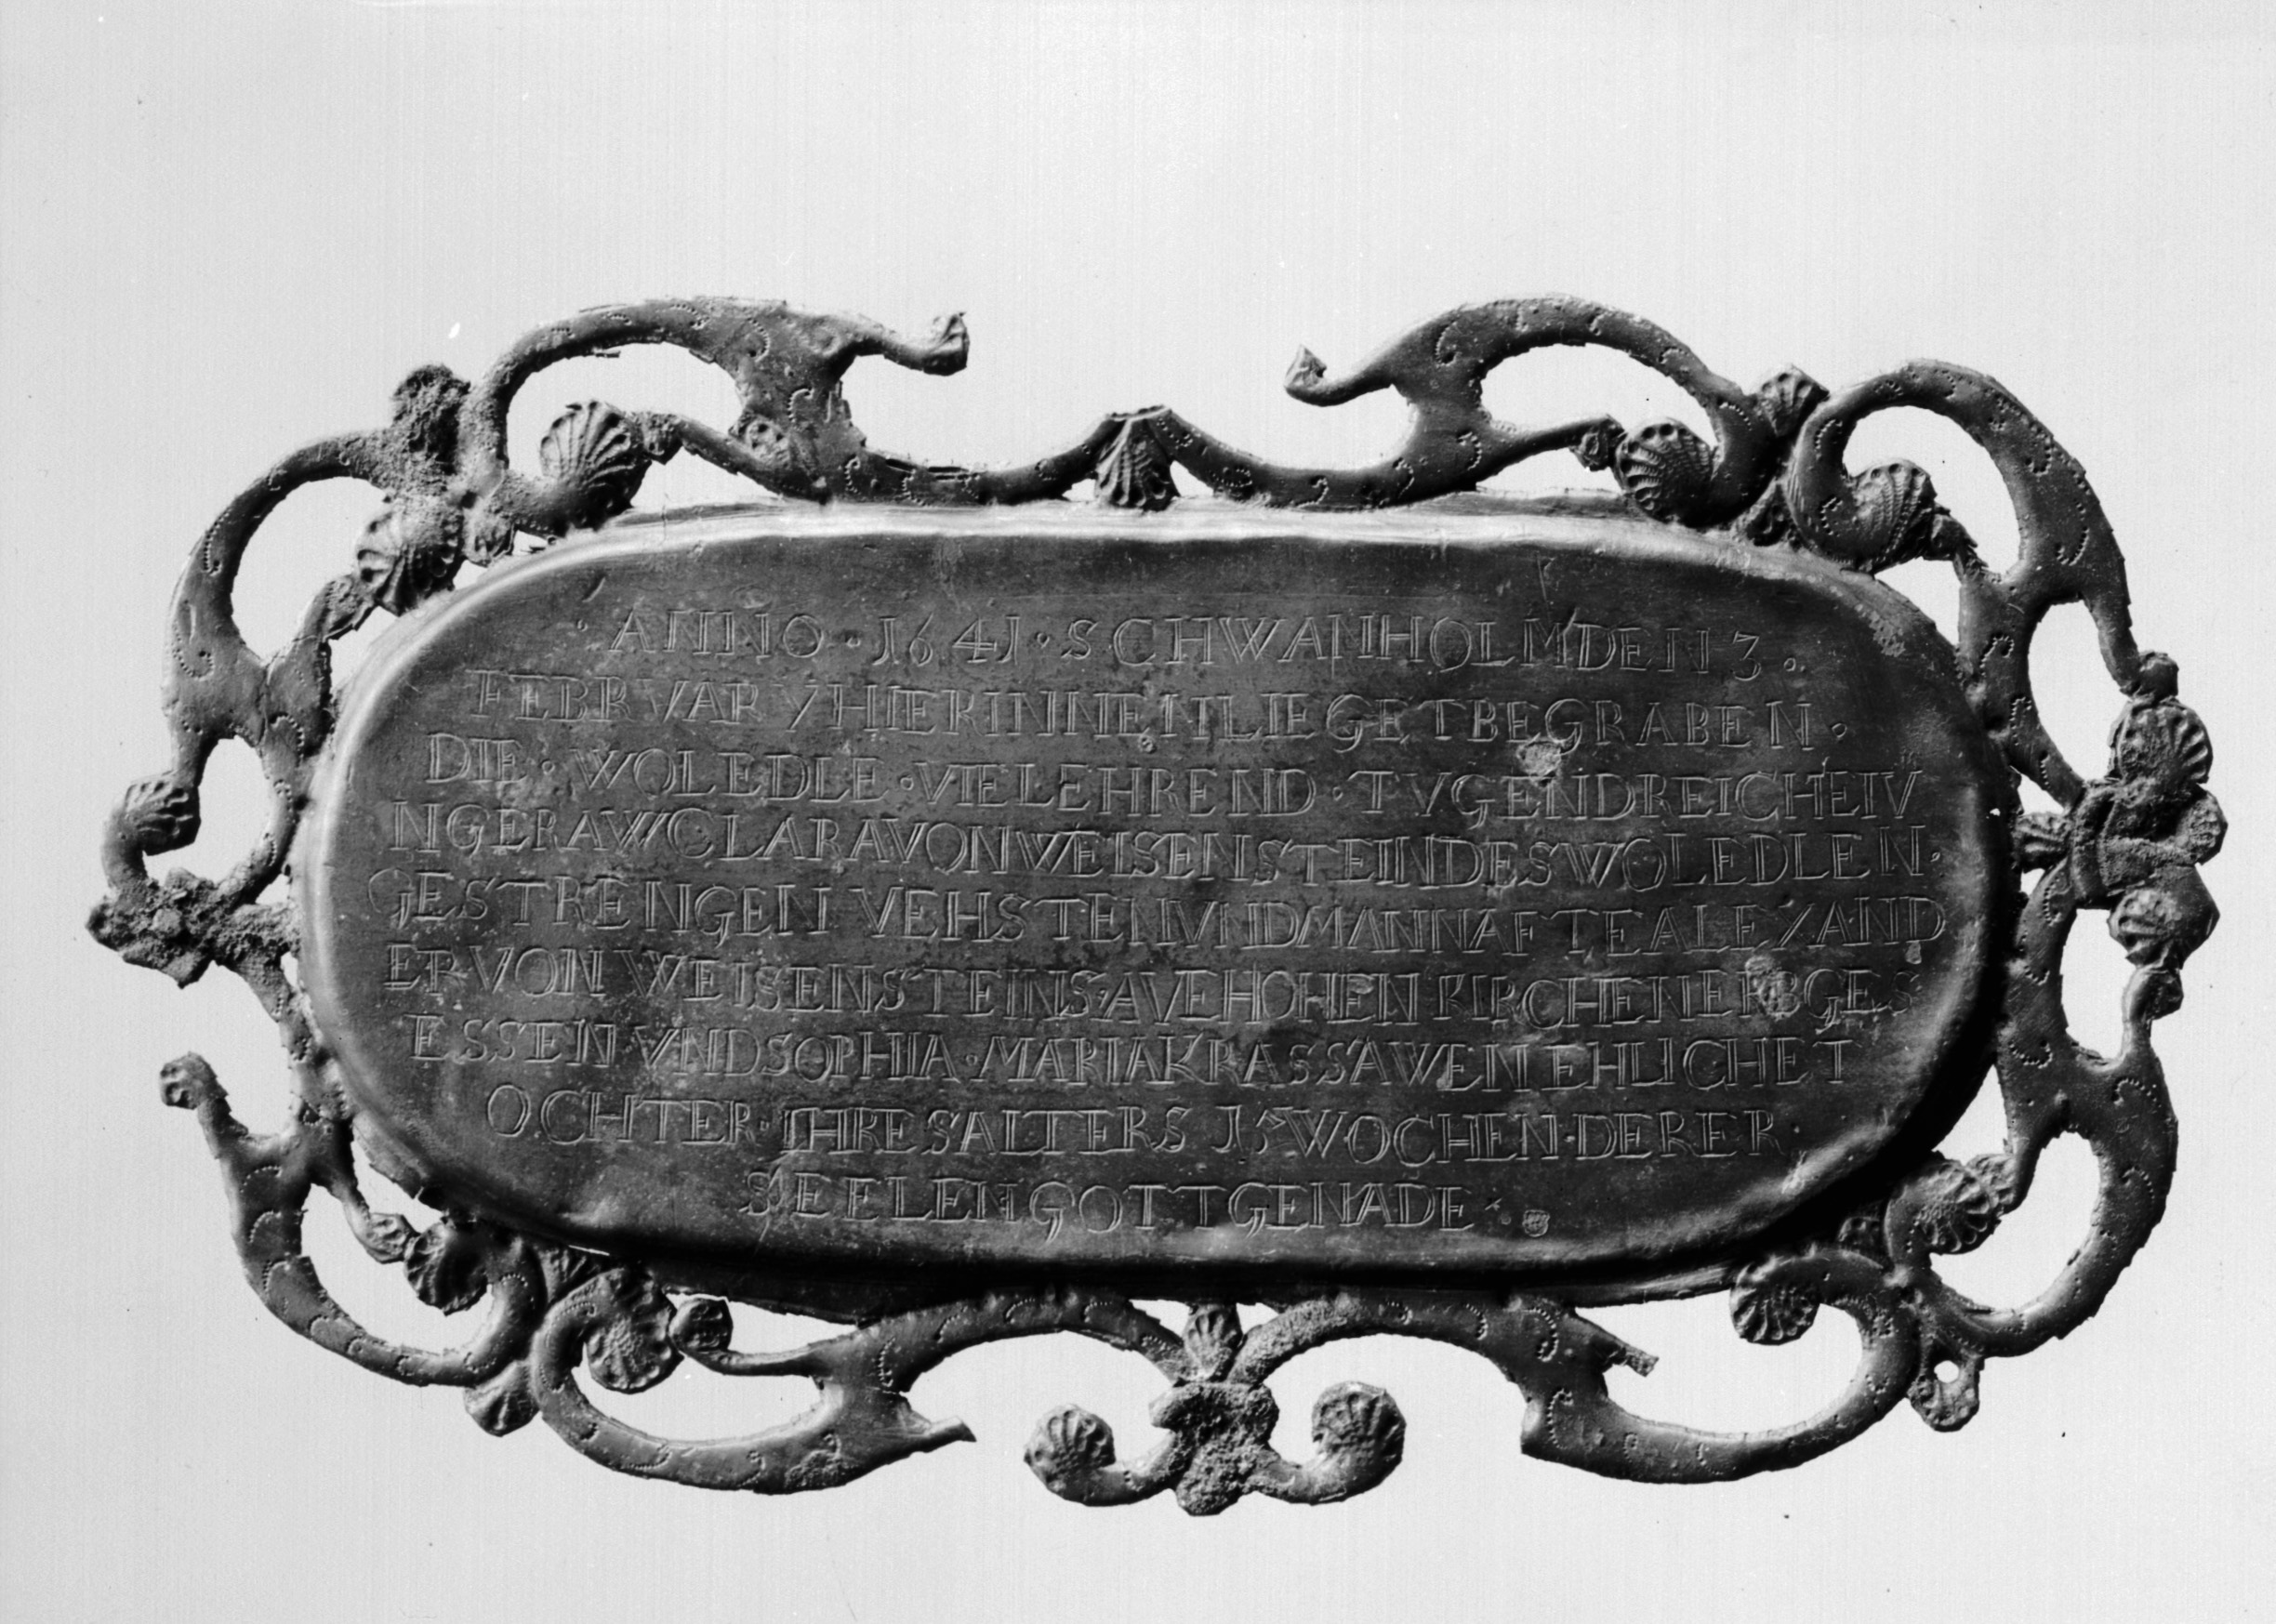 · ANNO · 1641 · SCHWANHOLM DEN 3 ·
FEBRVARY HIERINNEN LIEGET BEGRABEN ·
DIE · WOLEDLE · VIELEHREND · TVGENDREICHE IV
NGERAW CLARA VON WEISENSTEIN DES WOLEDLEN ·
GESTRENGEN VEHSTEN VND MANNAFTE ALEXAND
ER VON WEISENSTEINS · AVE HOHEN KIRCHEN ERBGES
ESSEN VND SOPHIA · MARIA KRASSAWEN EHLICHE T
OCHTER · IHRES ALTERS WOCHEN · DERER
SEELEN GOTT GENADE